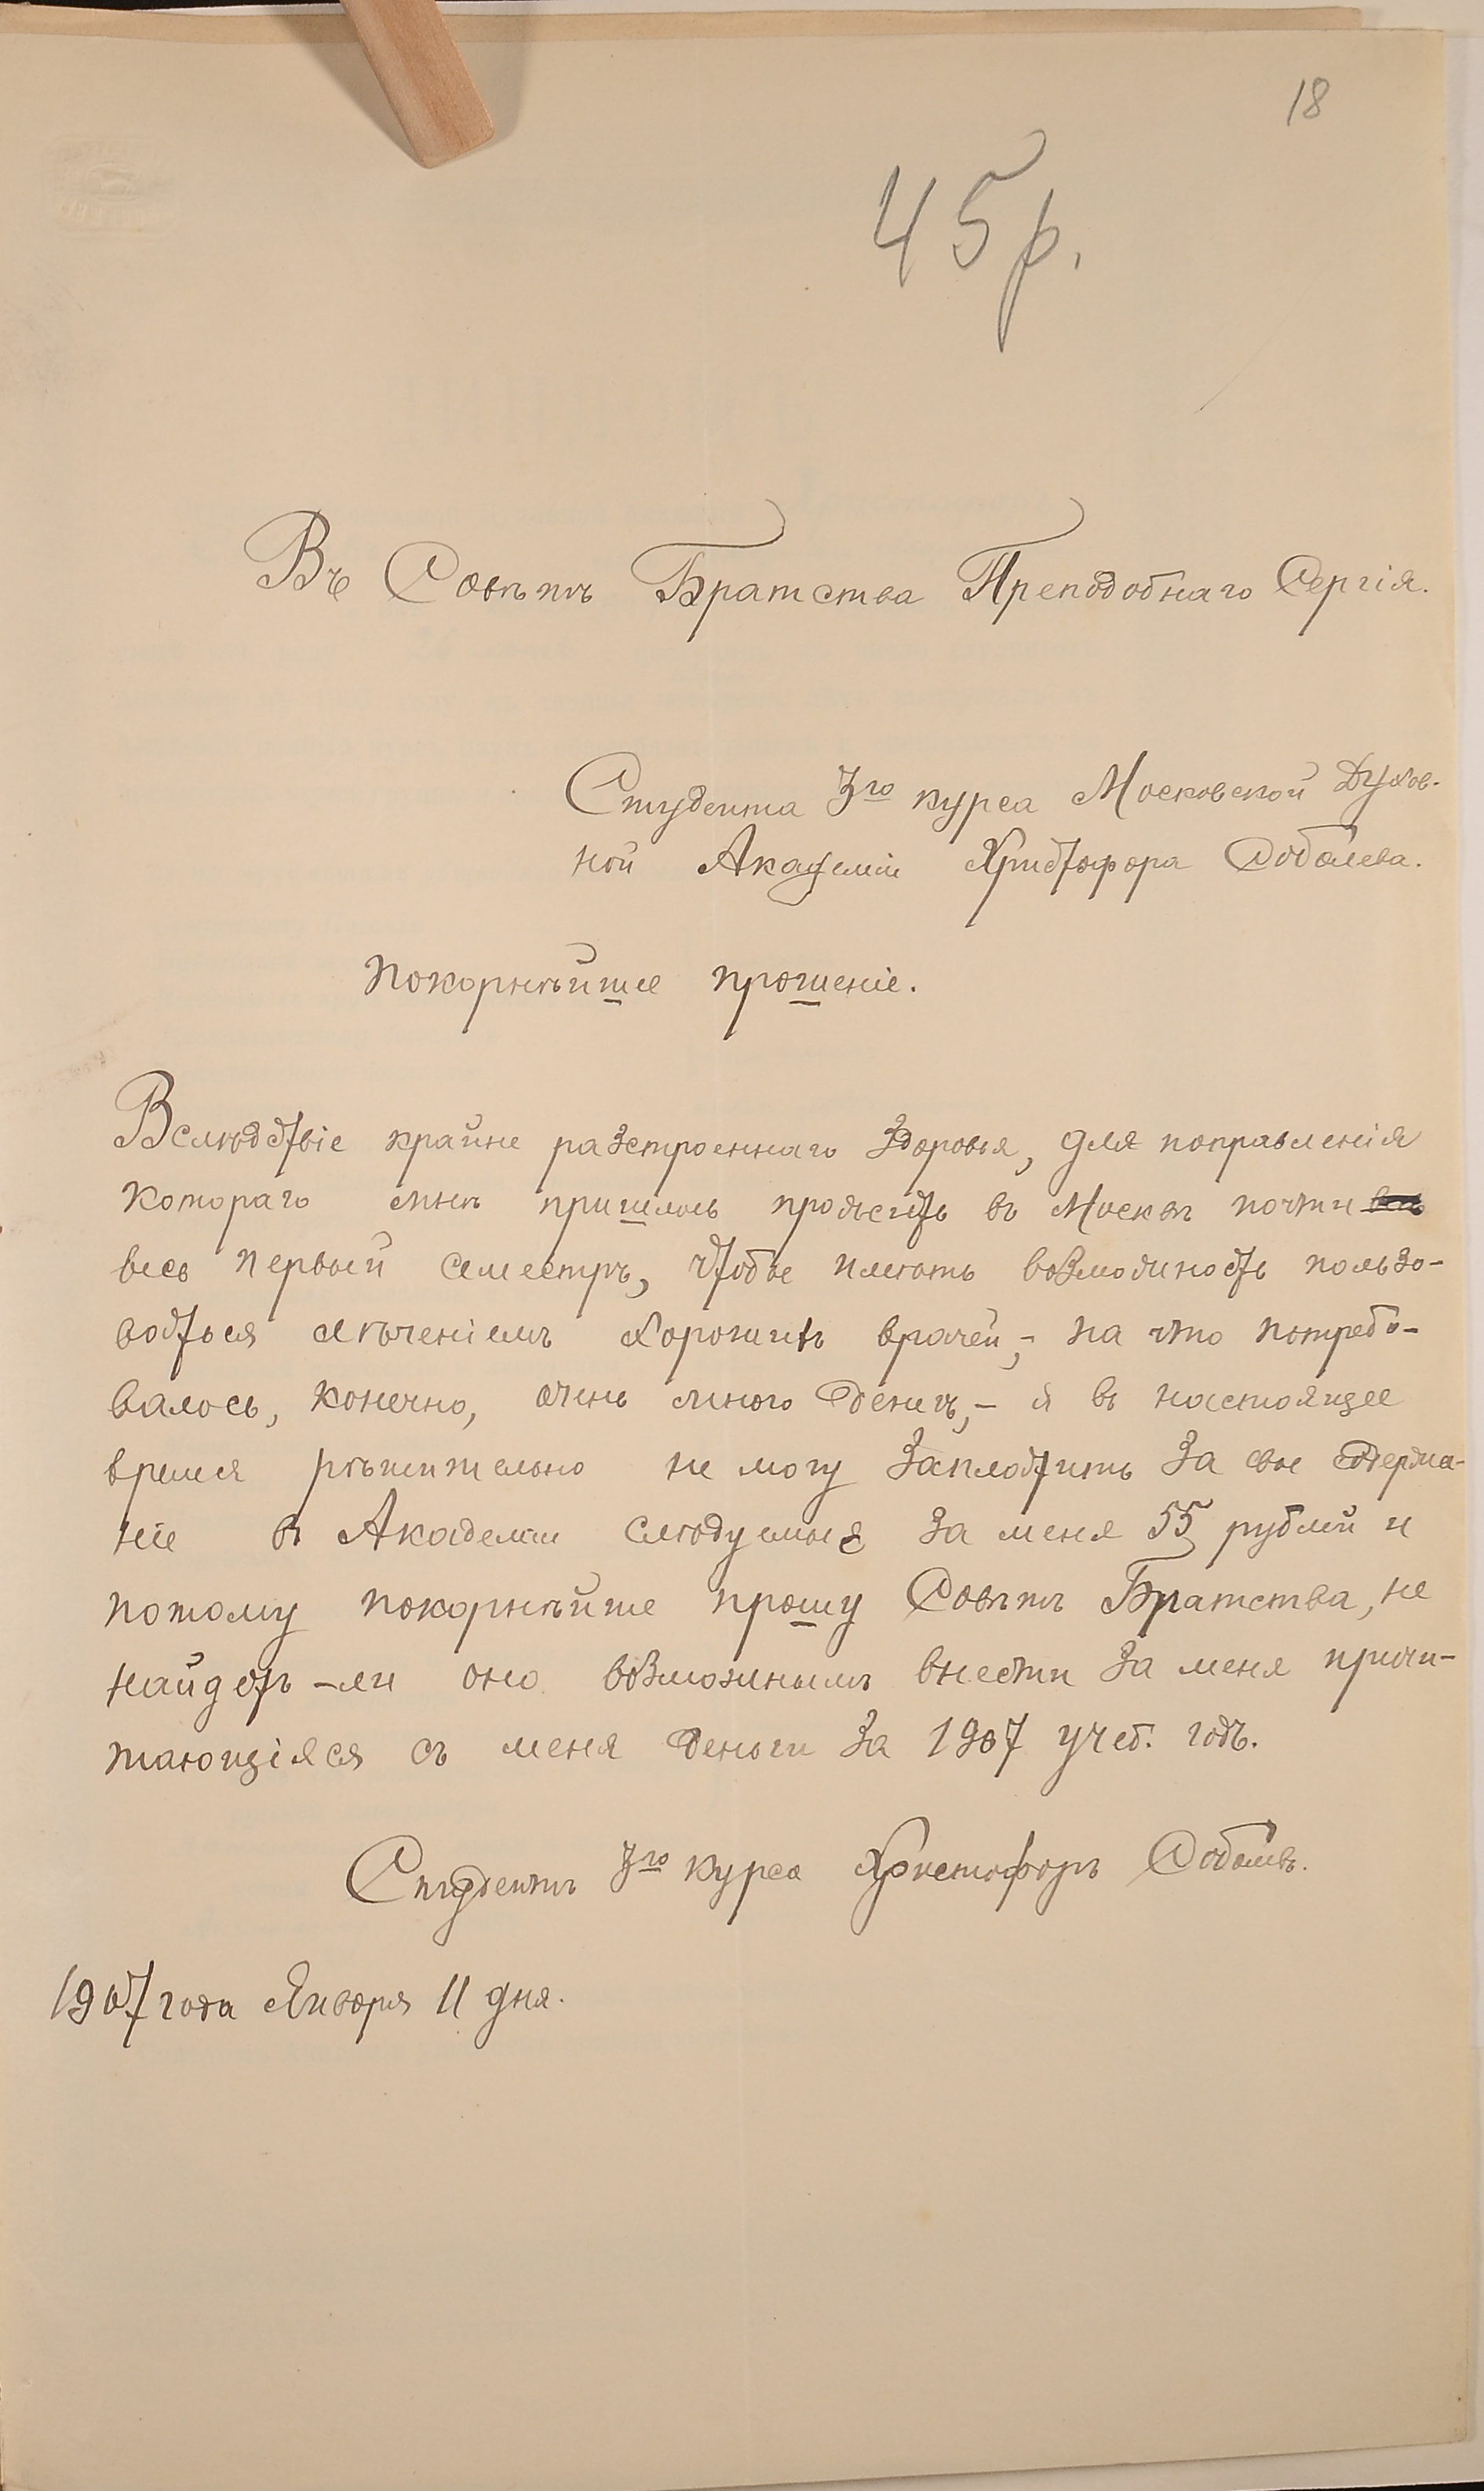 18
45 р.
Въ Совѣтъ Братства Преподобнаго Сергія.
Студента 3го курса Московской Духов-
ной Академіи Христофора Соболева.
Покорнѣйшее прошеніе.
Вслѣдствіе крайне разстроеннаго здоровья, для поправленія
котораго мнѣ пришлось прожить въ Москвѣ почти
весь первый семестръ, чтобы имѣть возможность пользо-
ваться лѣченіемъ хорошихъ врачей, - на что потребо-
валось, конечно, очень много денегъ, - я въ настоящее
время рѣшительно не могу заплатить за свое содержа-
ніе въ Академіи слѣдуемые за меня 55 рублей и
потому покорнѣйше прошу Совѣтъ Братства, не
найдетъ-ли оно возможнымъ внести за меня причи-
тающіяся съ меня деньги за 1907 учеб. годъ.
Студентъ 3го курса Христофоръ Соболевъ.
1907 года Января 11 дня.